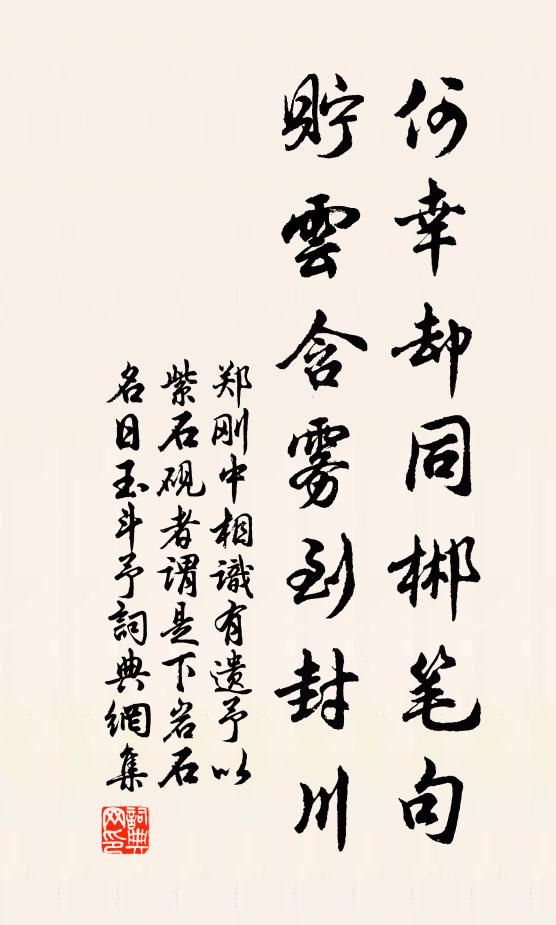 何幸却同郴笔句
贮雲含雾到封川
郑刚中相識有遗予以
紫石砚者谓是下岩石
名曰玉斗予詞典網集
詞典网印